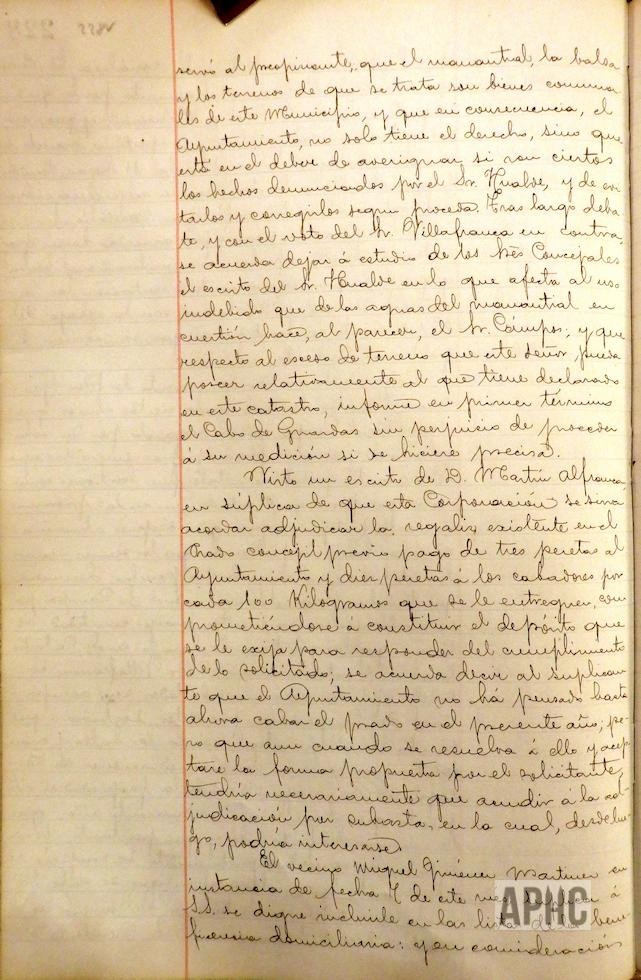 servó al preopinante, que el manantial, la balsa
y los terrenos de que se trata son bienes comuna-
les de este Municipio, y que en consecuencia, el
Ayuntamiento, no solo tiene el derecho, sino que
está en el deber de averiguar si son ciertos
los hechos denunciados por el Sr. Hualde, y de evi-
tarlos y corregirlos segun proceda. Tras largo deba-
te, y con el voto del Sr. Villafranca en contra,
se acuerda dejar á estudio de los Sres Concejales
el escrito del Sr. Hualde en lo que afecta al uso
indebido que de las aguas del manantial en
cuestión hace, al parecer, el Sr. Campos; y que
respecto al exceso de terreno que este señor pueda
poseer relativamente al que tiene declarado
en este catastro, informe en primer término
el Cabo de Guardas sin perjuicio de proceder
á su medición si se hiciere precisa.
Visto un escrito de D. Martín Alfranca
en súplica de que esta Corporación se sirva
acordar adjudicar la regaliz existente en el
Prado concejil previo pago de tres pesetas al
Ayuntamiento y diez pesetas á los cabadores por
cada 100 Kilogramos que se le entreguen, com
prometiéndose á constituir el depósito que
se le exija para responder del cumplimiento
de lo solicitado; se acuerda decir al suplican-
te que el Ayuntamiento no há pensado hasta
ahora cabar el prado en el presente año; pe-
ro que aun cuando se resuelva á ello y acep
tare la forma propuesta por el solicitante,
tendría necesariamente que acudir á la ad-
judicación por subasta, en la cual, desde lue-
go, podría interesarse.
El vecino Miguel Giménez Martinez en
instancia de fecha 7 de este mes, suplica á
S.S. se digne incluirle en las listas de la bene-
ficencia domiciliaria: y en consideración
APHC